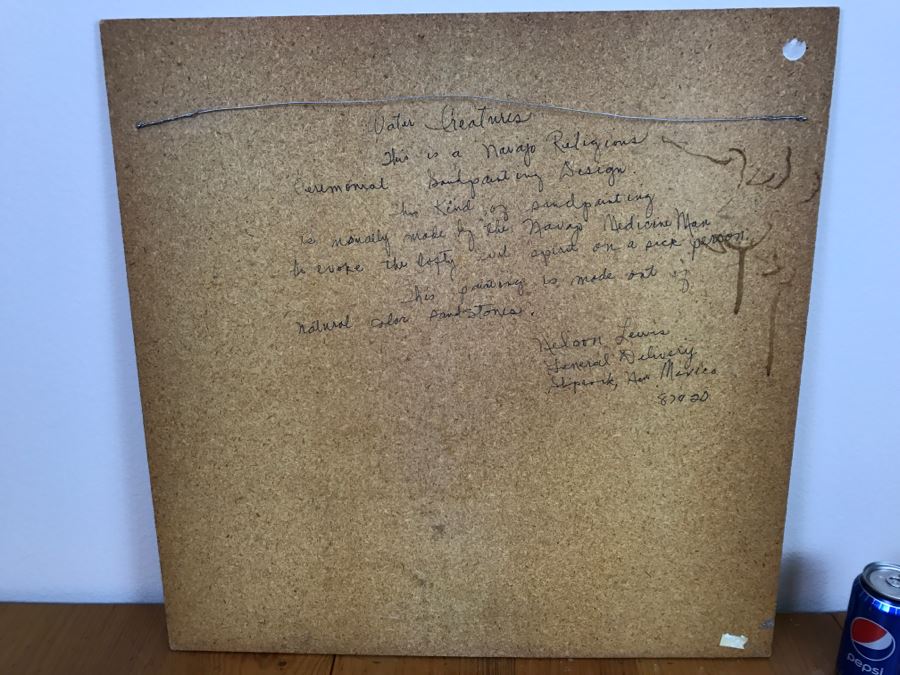 Water Creatures
This is a Navajo Religious
Ceremonial Sandpainting Design.
This Kind of sandpainting
is usually made by the Navajo Medicine Man
to evoke the lofty evil spirit on a sick person.
This painting is made out of
natural color sandstones.
Nelson Lewis
General Delivery
Shiprock, New Mexico
87420
pepsi